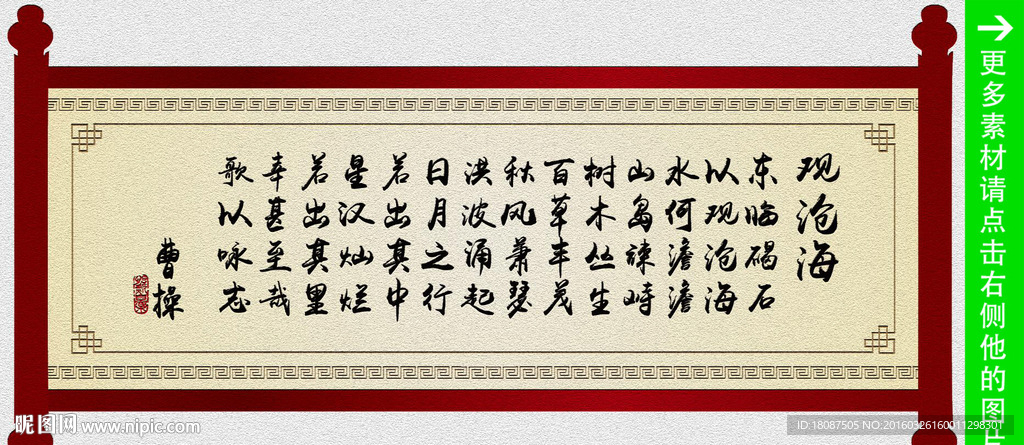 观沧海
东临碣石
以观沧海
水何澹澹
山岛竦峙
树木丛生
百草丰茂
秋风萧瑟
洪波涌起
日月之行
若出其中
星汉灿烂
若出其里
幸甚至哉
歌以咏志
曹操
更多素材请点击右侧他的图片
昵图网 www.nipic.com
ID:18087505 NO:20160526160011298301